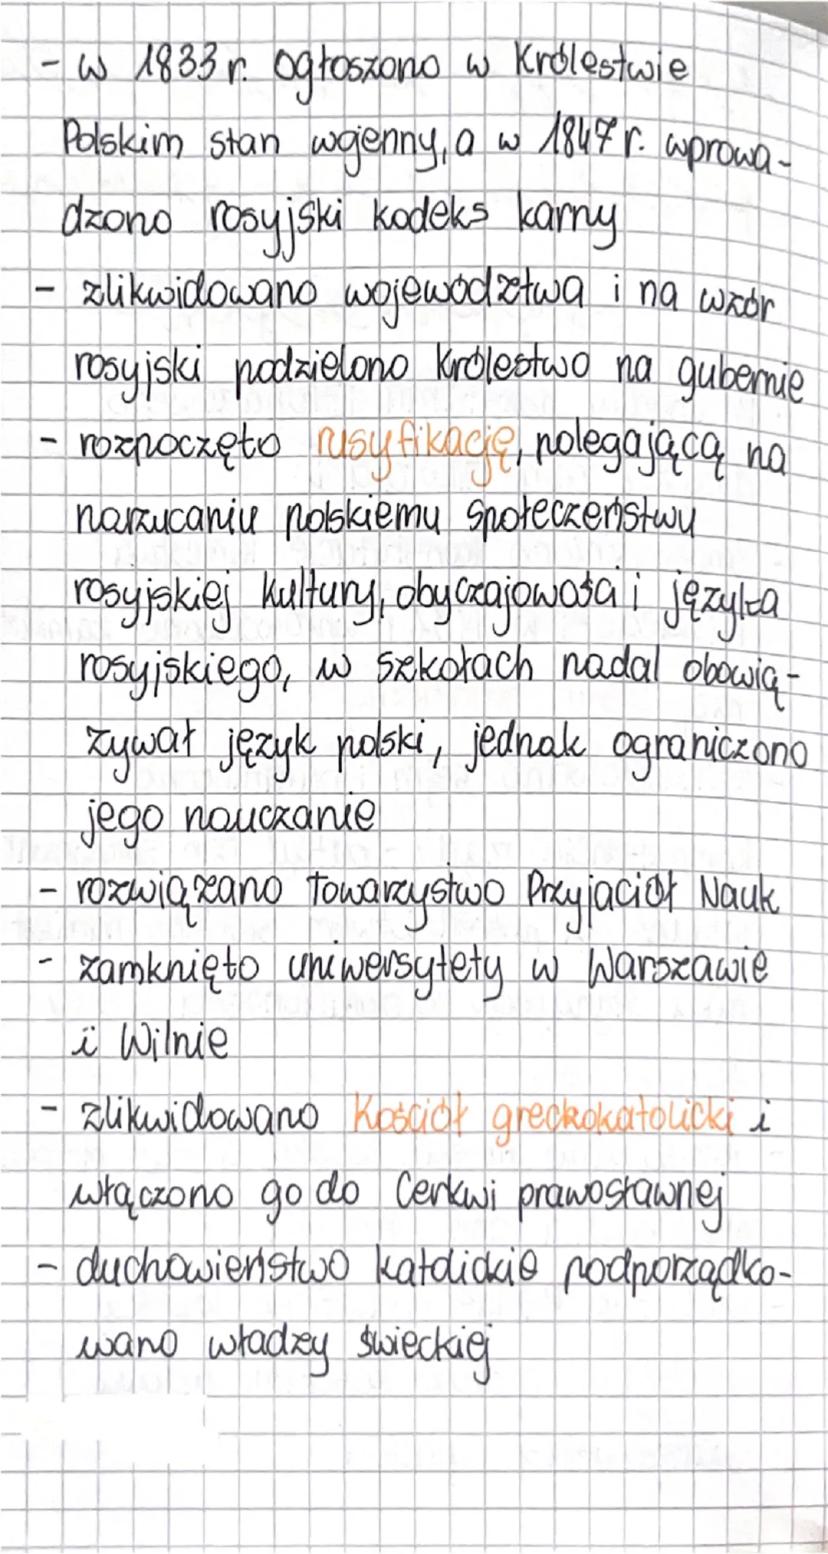 - w 1833 r. ogłoszono w Królestwie
Polskim stan wojenny, a w 1847 r. wprowa-
dzono rosyjski kodeks karny
- zlikwidowano województwa i na wzór
rosyjski podzielono królestwo na gubernie
- rozpoczęto rusyfikację, polegającą na
narzucaniu polskiemu społeczeństwu
rosyjskiej kultury, obyczajowości i języka
rosyjskiego, w szkołach nadal obowią-
zywał język polski, jednak ograniczono
jego nauczanie
- rozwiązano Towarzystwo Przyjaciół Nauk
- zamknięto uniwersytety w Warszawie
i Wilnie
- zlikwidowano Kościół greckokatolicki i
włączono go do Cerkwi prawosławnej
- duchowieństwo katolickie podporządko-
wano władzy świeckiej